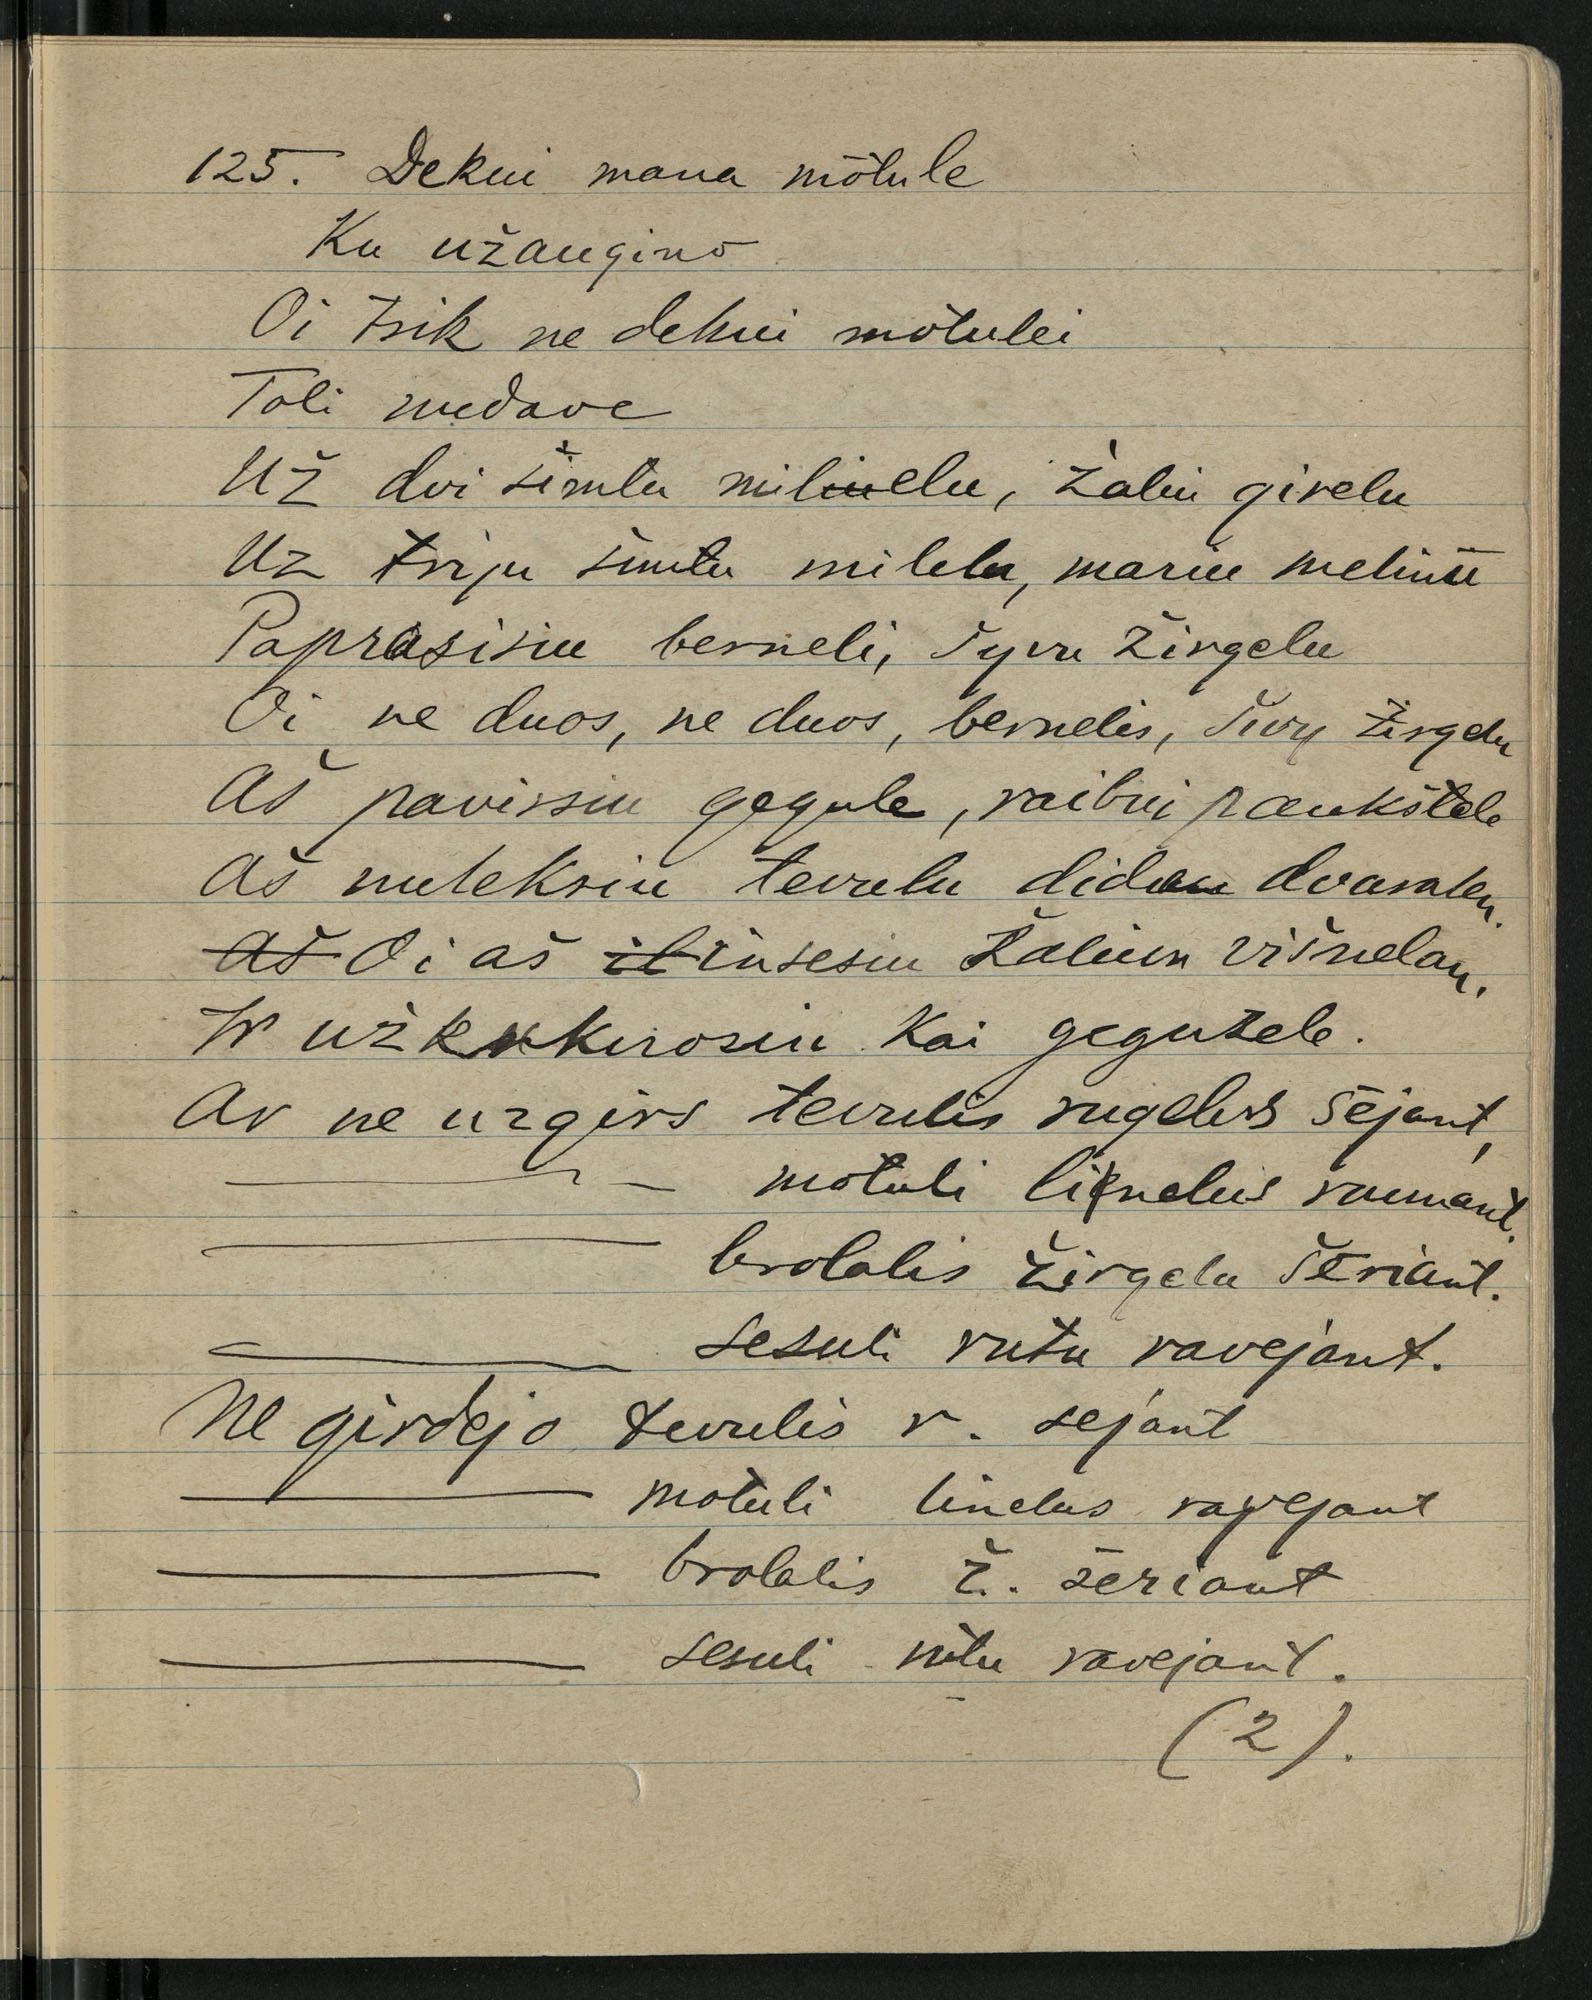 125. Dekui mana mōtule
Ku užaugino
Oi tsik ne dekui mōtulei
Toli nudave
Už dvi šimtu milelu, žaliu girelu
Uz triju šimtu milelu, mariu meliniū
Paprašisiu berneli, šyvu žirgelu
Oi ne duos, ne duos, bernelis, šivy žirgelu
Aš pavirsiu gegule, raibui paukštele
Aš nuleksiu tevulu didžiu dvaralen.
Oi aš insesiu žaliun višnelan.
Ir užkukuosiu kai gegužele.
Ar ne uzgirs tevulis rugelus sējant,
motuli linelus raunant.
brolalis žirgelu šēriant.
sesuli rutu ravejant.
Ne girdejo tevulis r. sejant
motuli linelus ravejant
brolalis ž. šēriant
sesuli rutu ravejant.
(2).